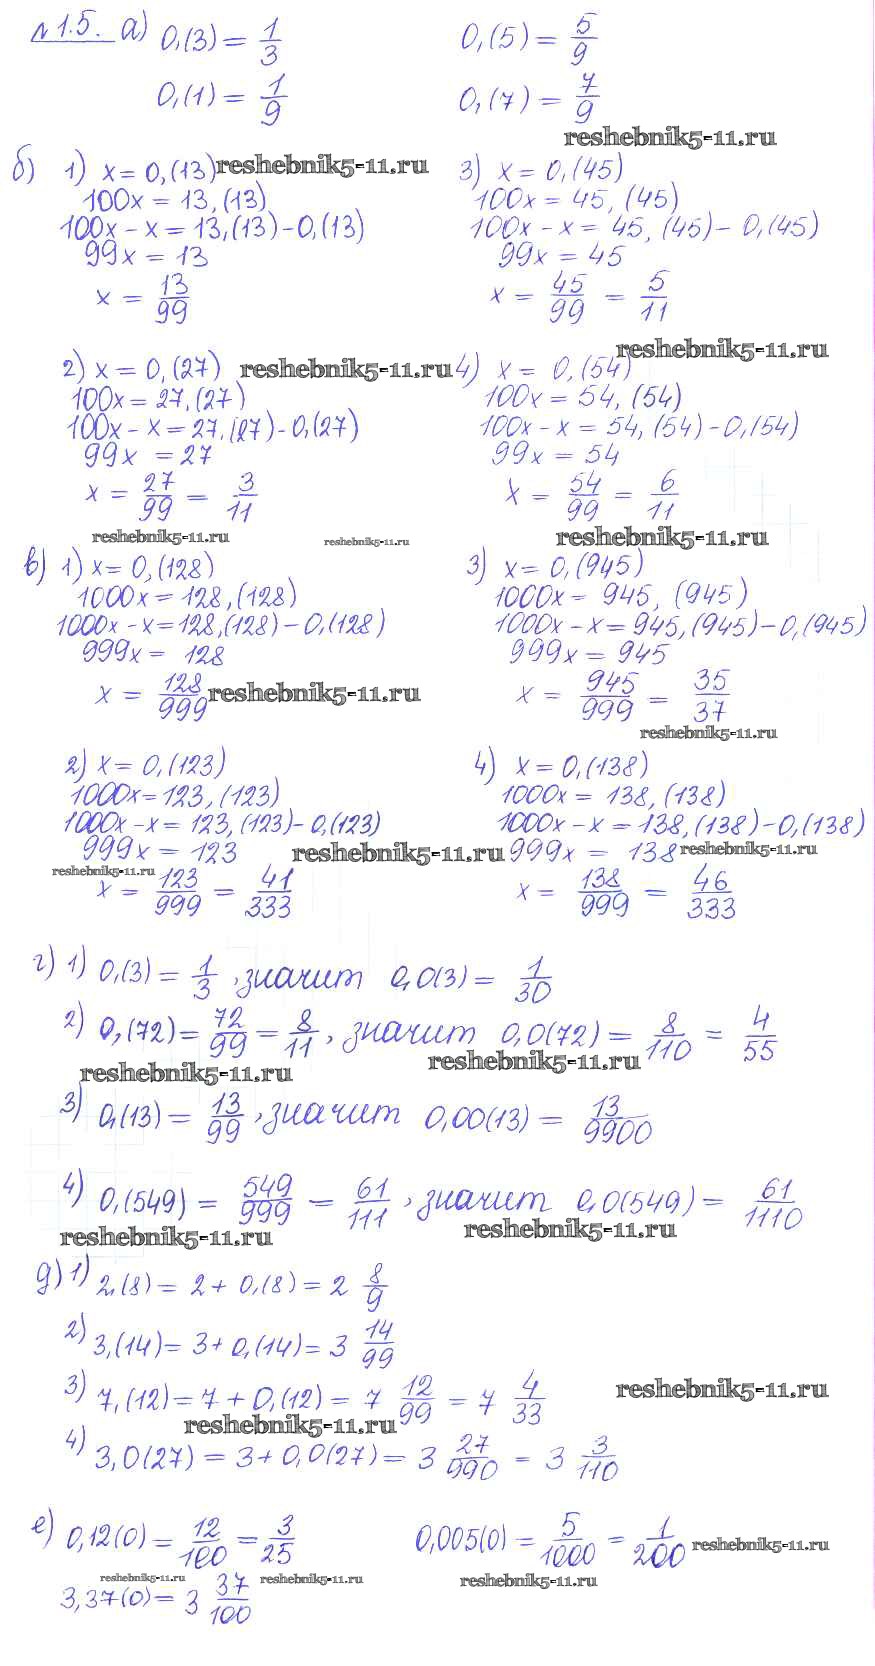 №1.5. а) 0,(3) = 1/3 0,(5) = 5/9
0,(1) = 1/9 0,(7) = 7/9
reshebnik5-11.ru
б) 1) x = 0,(13) reshebnik5-11.ru
100x = 13,(13)
100x - x = 13,(13) - 0,(13)
99x = 13
x = 13/99
3) x = 0,(45)
100x = 45,(45)
100x - x = 45,(45) - 0,(45)
99x = 45
x = 45/99 = 5/11
2) x = 0,(27) reshebnik5-11.ru
100x = 27,(27)
100x - x = 27,(27) - 0,(27)
99x = 27
x = 27/99 = 3/11
reshebnik5-11.ru
4) x = 0,(54)
100x = 54,(54)
100x - x = 54,(54) - 0,(54)
99x = 54
x = 54/99 = 6/11
reshebnik5-11.ru reshebnik5-11.ru reshebnik5-11.ru
в) 1) x = 0,(128)
1000x = 128,(128)
1000x - x = 128,(128) - 0,(128)
999x = 128
x = 128/999 reshebnik5-11.ru
3) x = 0,(945)
1000x = 945,(945)
1000x - x = 945,(945) - 0,(945)
999x = 945
x = 945/999 = 35/37
reshebnik5-11.ru
2) x = 0,(123)
1000x = 123,(123)
1000x - x = 123,(123) - 0,(123)
999x = 123 reshebnik5-11.ru
reshebnik5-11.ru
x = 123/999 = 41/333
4) x = 0,(138)
1000x = 138,(138)
1000x - x = 138,(138) - 0,(138)
999x = 138 reshebnik5-11.ru
x = 138/999 = 46/333
г) 1) 0,(3) = 1/3, значит 0,0(3) = 1/30
2) 0,(72) = 72/99 = 8/11, значит 0,0(72) = 8/110 = 4/55
reshebnik5-11.ru reshebnik5-11.ru
3) 0,(13) = 13/99, значит 0,00(13) = 13/9900
4) 0,(549) = 549/999 = 61/111, значит 0,0(549) = 61/1110
reshebnik5-11.ru reshebnik5-11.ru
д) 1) 2,(8) = 2 + 0,(8) = 2 8/9
2) 3,(14) = 3 + 0,(14) = 3 14/99
3) 7,(12) = 7 + 0,(12) = 7 12/99 = 7 4/33 reshebnik5-11.ru
reshebnik5-11.ru
4) 3,0(27) = 3 + 0,0(27) = 3 27/990 = 3 3/110
е) 0,12(0) = 12/100 = 3/25 0,005(0) = 5/1000 = 1/200 reshebnik5-11.ru
reshebnik5-11.ru reshebnik5-11.ru reshebnik5-11.ru
3,37(0) = 3 37/100